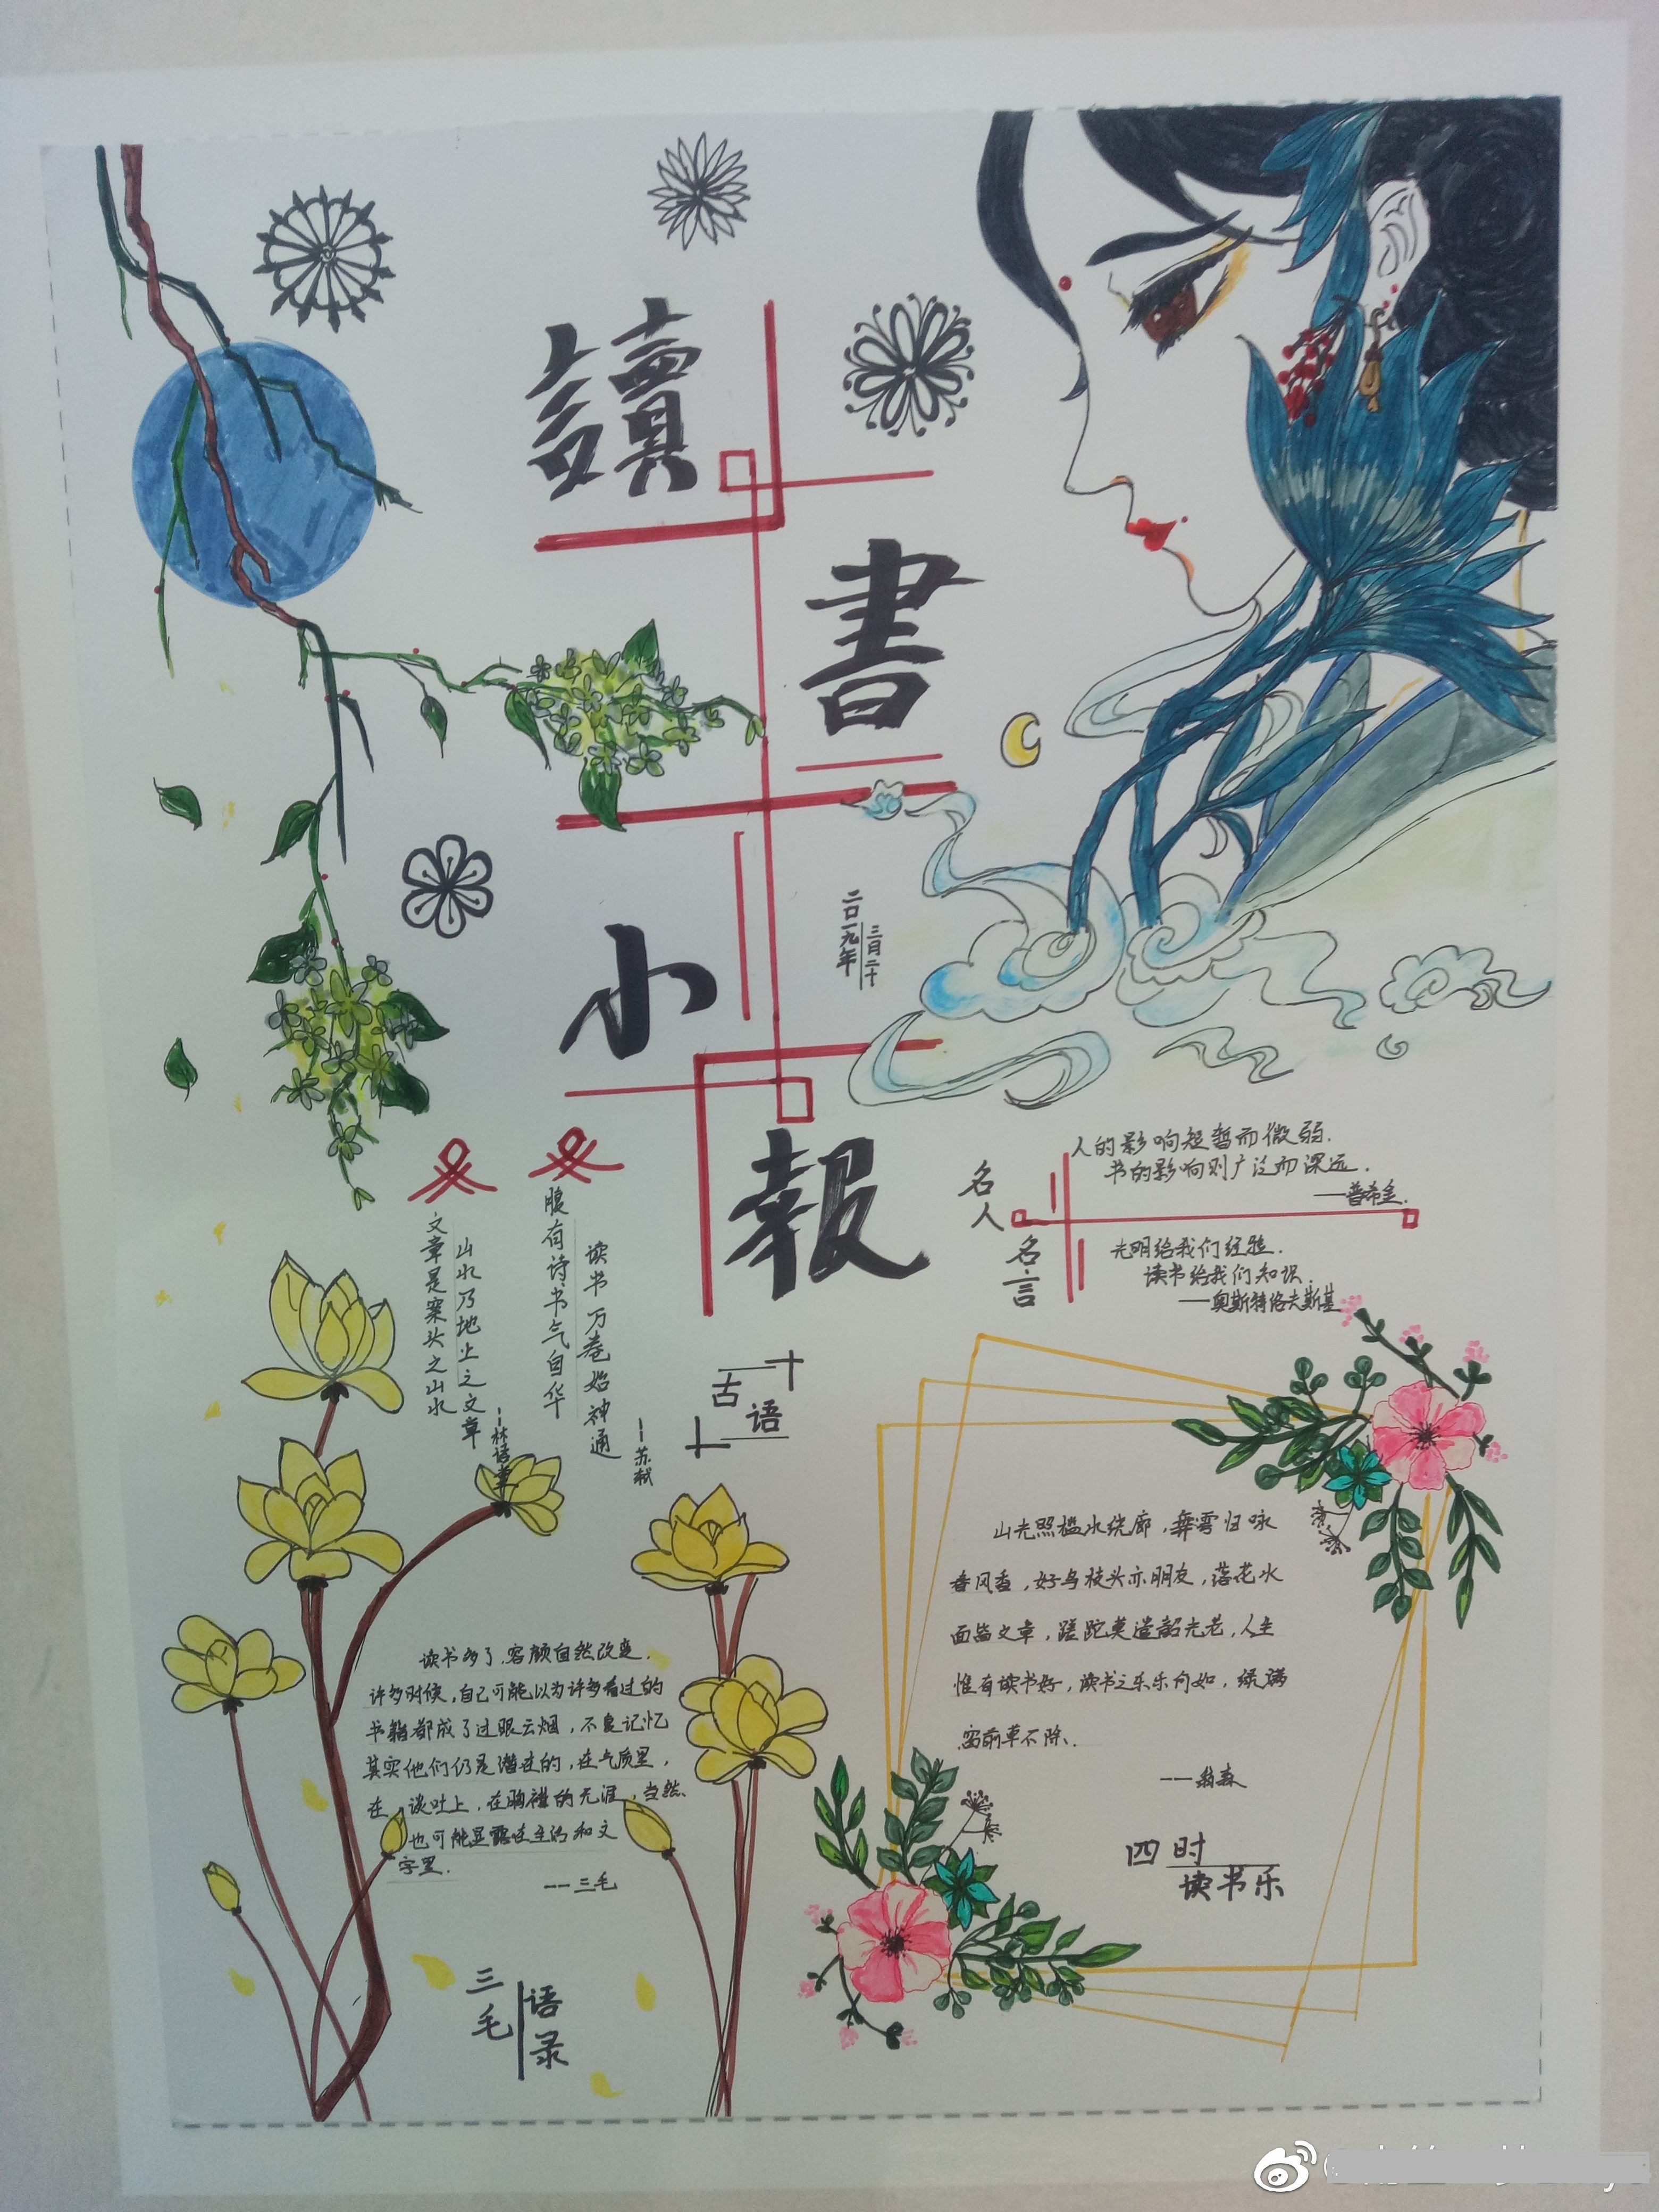 讀
書
小
報
二〇一九年
三月二十
名人
名言
人的影响短暂而微弱.
书的影响则广泛而深远.
——普希金.
光明给我们经验.
读书给我们知识.
——奥斯特洛夫斯基
古语
读书万卷始神通
腹有诗书气自华
--苏轼
山水乃地上之文章
文章是案头之山水
山光照槛水绕廊,舞雩归咏
春风香,好鸟枝头亦朋友,落花水
面皆文章,蹉跎莫遣韶光老,人生
惟有读书好,读书之乐乐何如,绿满
窗前草不除.
---翁森
四时
读书乐
读书多了,容颜自然改变,
许多时候,自己可能以为许多看过的
书籍都成了过眼云烟,不复记忆
其实他们仍是潜在的,在气质里,
在谈吐上,在胸襟的无涯,当然,
也可能显露在生活和文
字里.
---三毛
三毛
语录